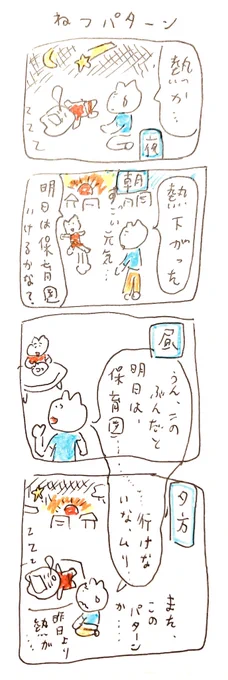 ねつパターン
熱いっか…
夜
熱
下がった
朝
すごい元気…
明日は保育園
いけるかな?
昼
うん、この
ぶんだと
明日は、
保育園…
…行けな
いな、ムリ…
夕方
また、
この
パターン
か……
昨日より
熱が